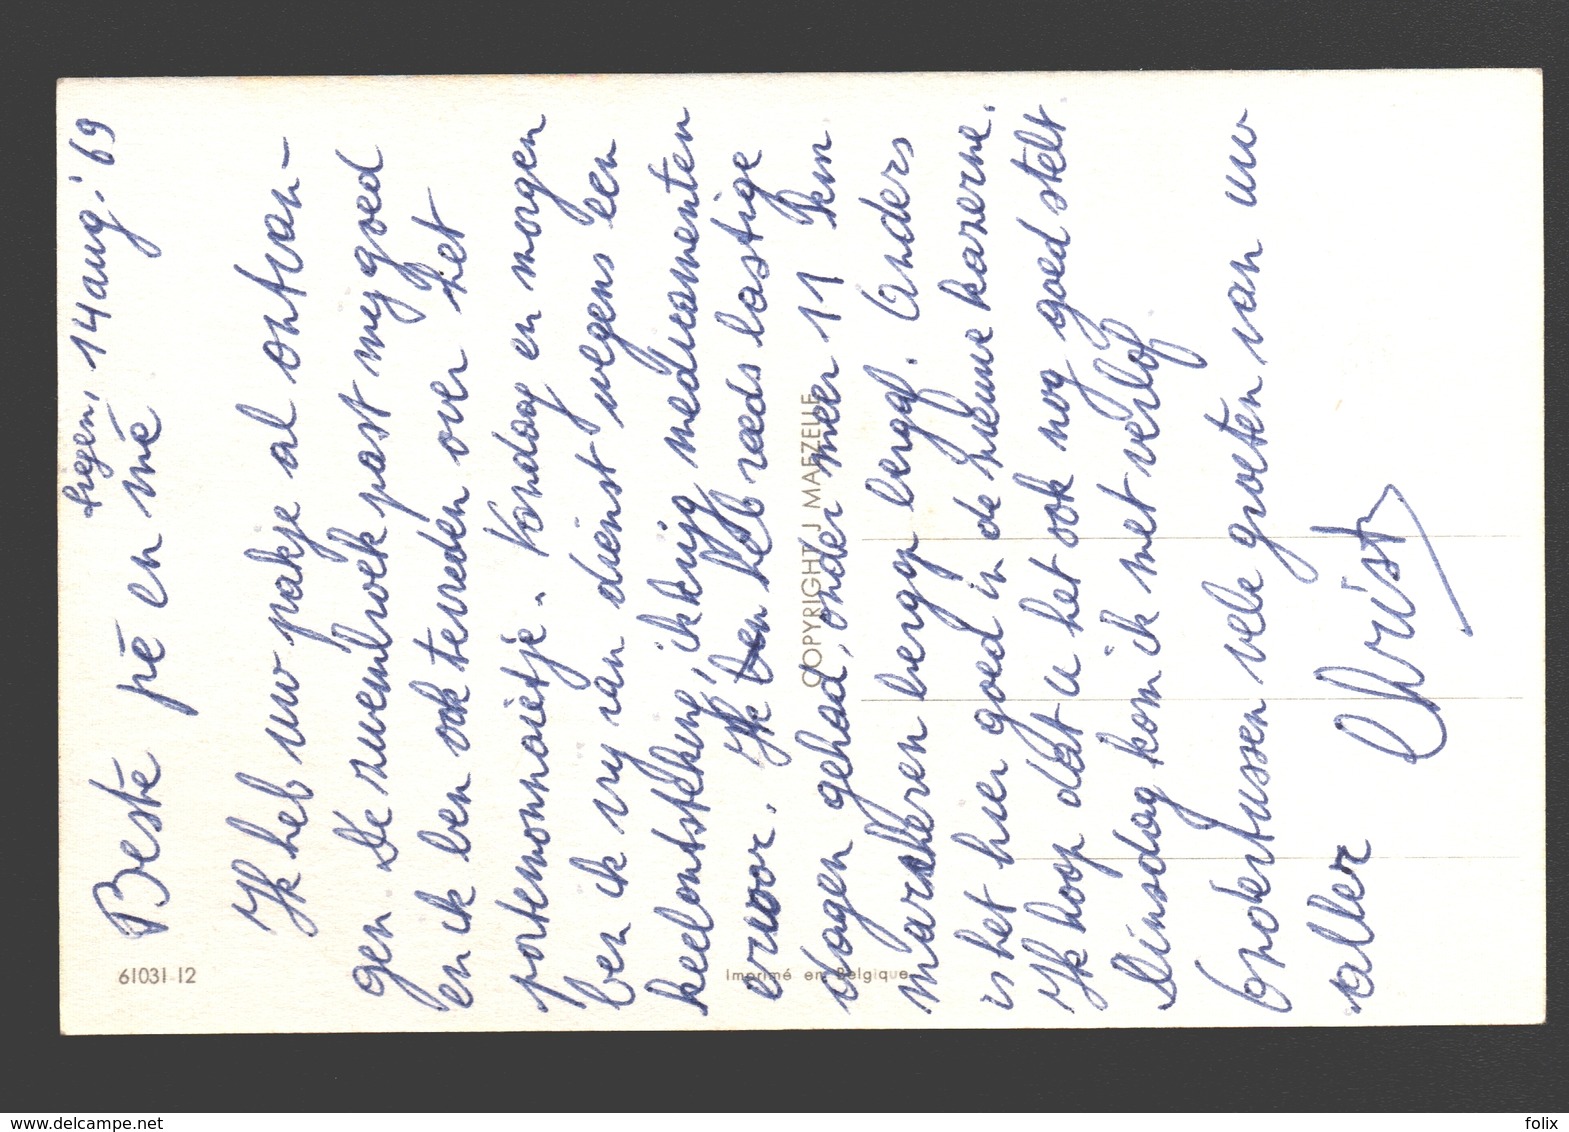 Siegen, 14 aug. '69
Beste pé en mé
Ik heb uw pakje al ontvan-
gen. De zwembroek past mij goed
en ik ben ook tevreden over het
portemonnaietje. Vandaag en morgen
ben ik vrij van dienst wegens een
keelontsteking, ik krijg medicamenten
ervoor. Ik heb reeds lastige
dagen gehad, onder meer 11 km
marcheren bergop bergaf. Anders
is het hier goed in de nieuwe kazerne.
Ik hoop dat u het ook nog goed stelt.
Dinsdag kom ik met verlof
Ondertussen vele groeten van uw
aller
Christ
61031-12
Imprimé en Belgique
COPYRIGHT J MAEZELLE
folix
www.delcampe.net